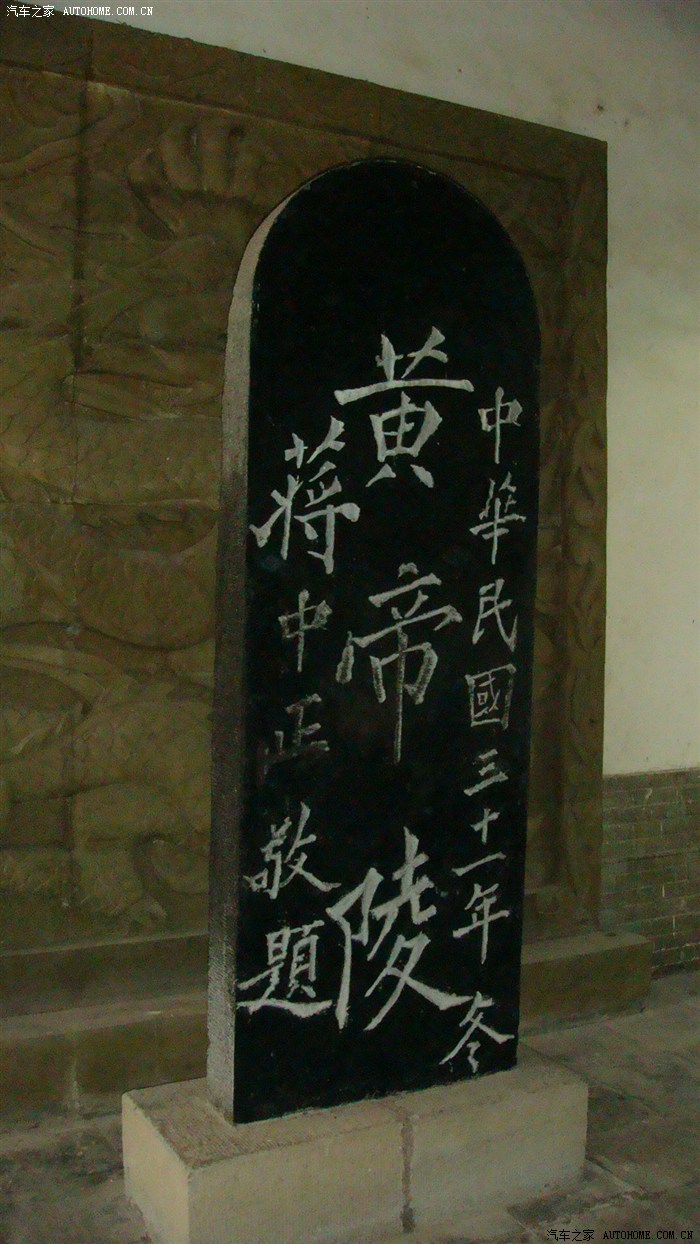 汽车之家 AUTOHOME.COM.CN
中華民國三十一年冬
黃帝陵
蔣中正敬題
汽车之家 AUTOHOME.COM.CN